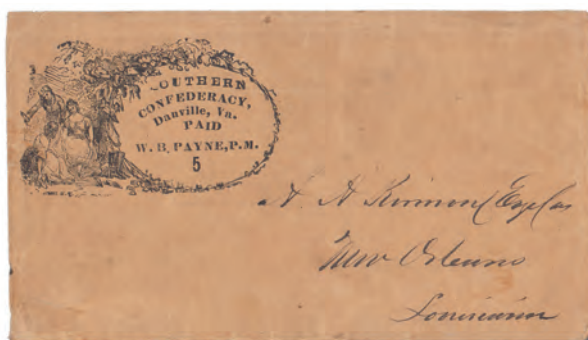 SOUTHERN
CONFEDERACY,
Danville, Va.
PAID
W. B. PAYNE, P.M.
5
A. A.
New Orleans
Louisiana